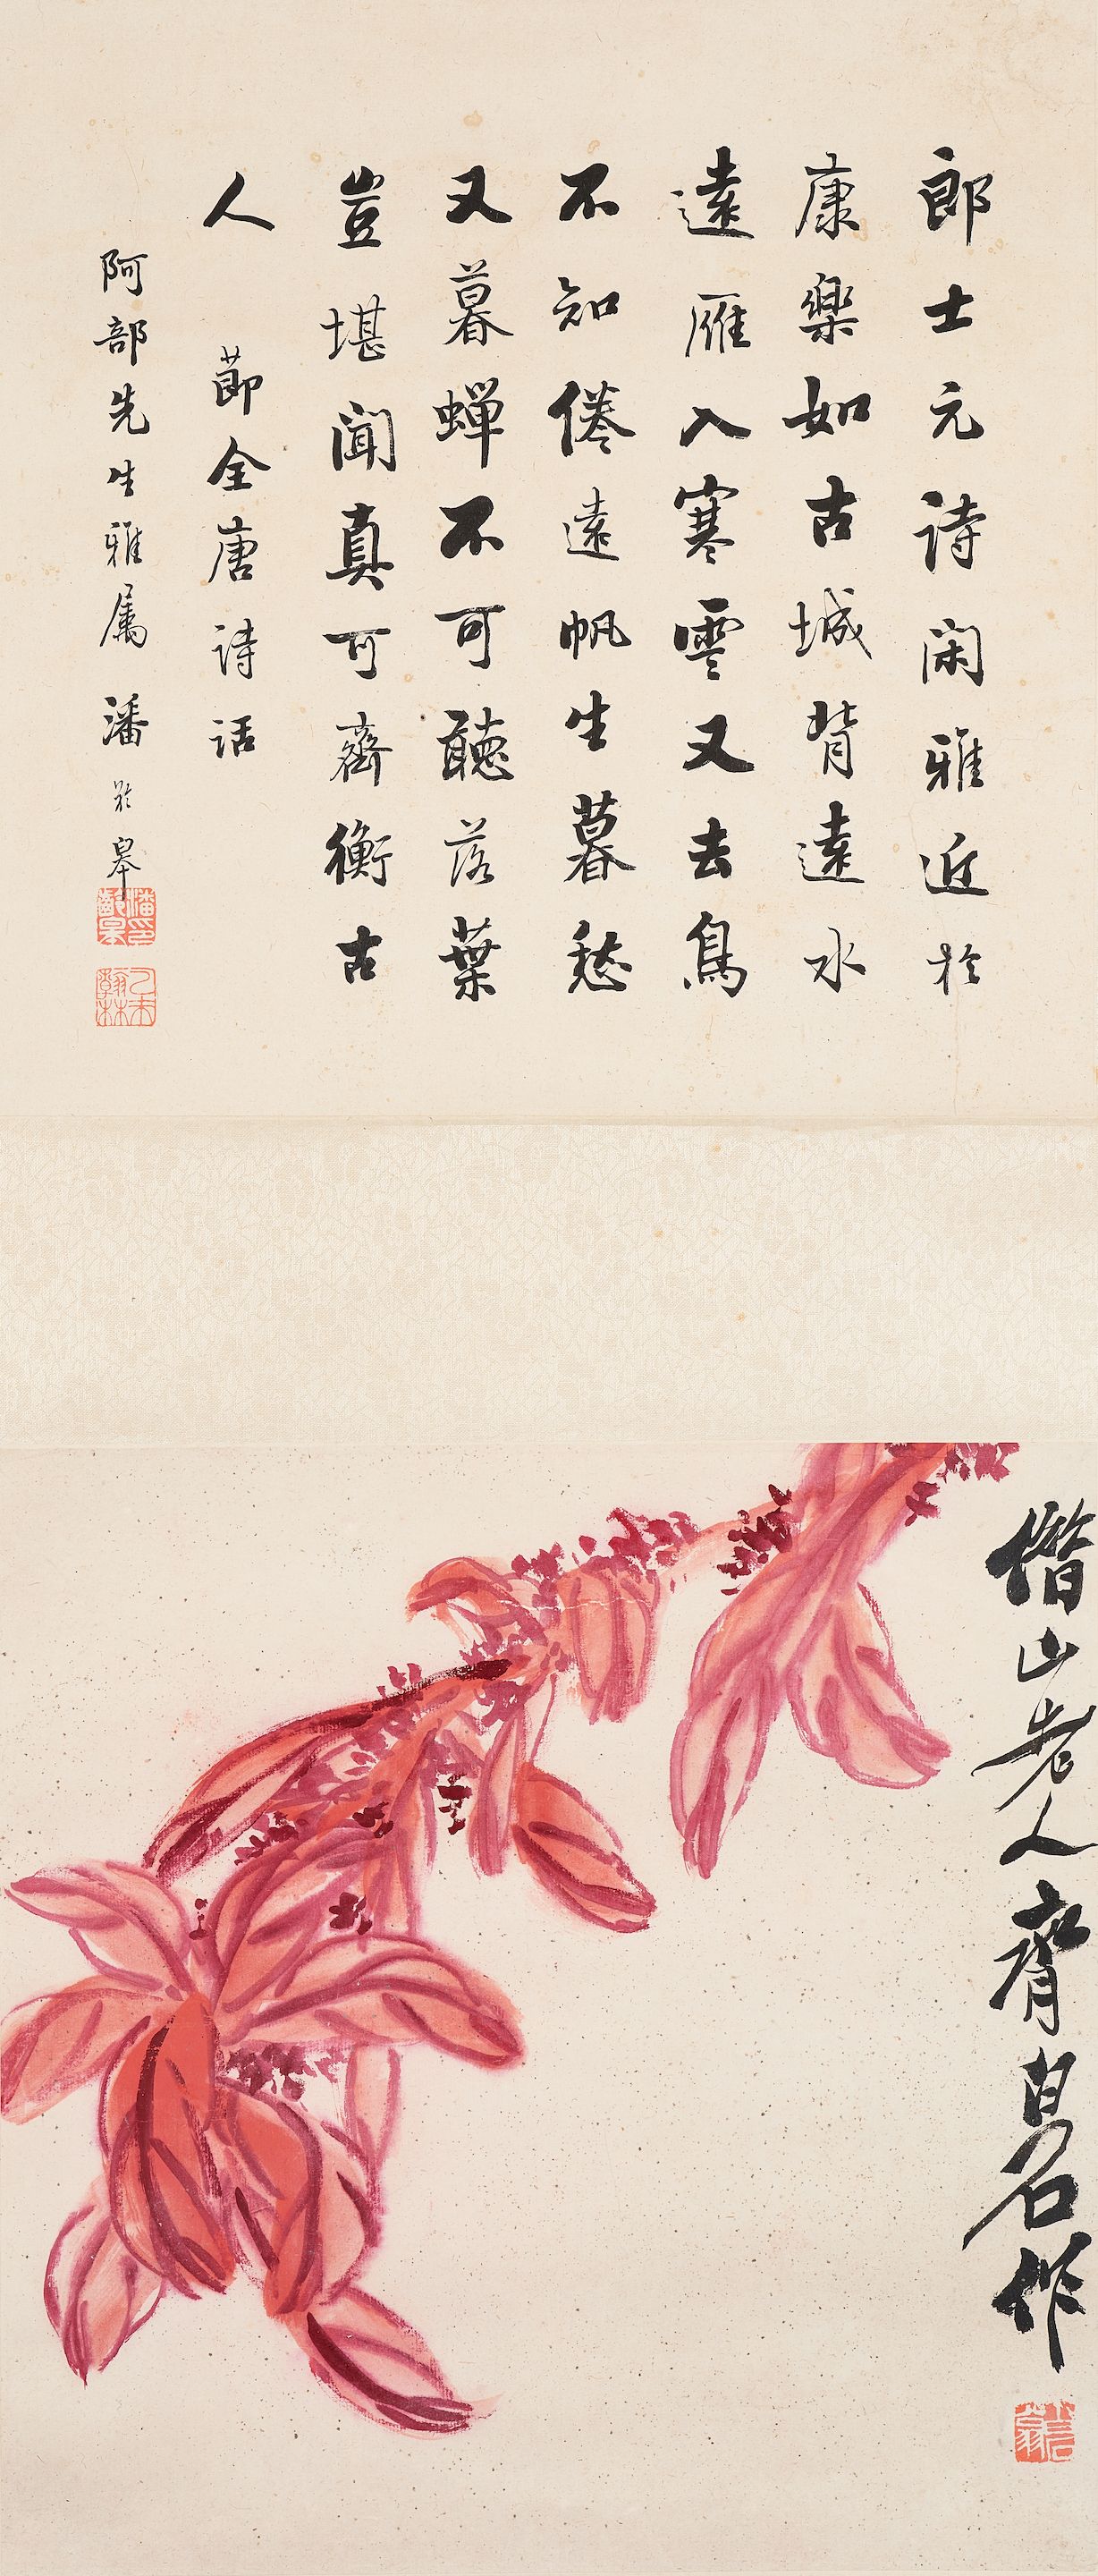 郎士元詩閑雅近於
康樂如古城背遠水
遠雁入寒雲又去鳥
不知倦遠帆生暮愁
又暮蟬不可聽落葉
豈堪聞真可齊衡古
人
節全唐詩話
阿部先生雅属 潘齡皋
潘印齡皋
乙未翰林
借山老人齊白石作